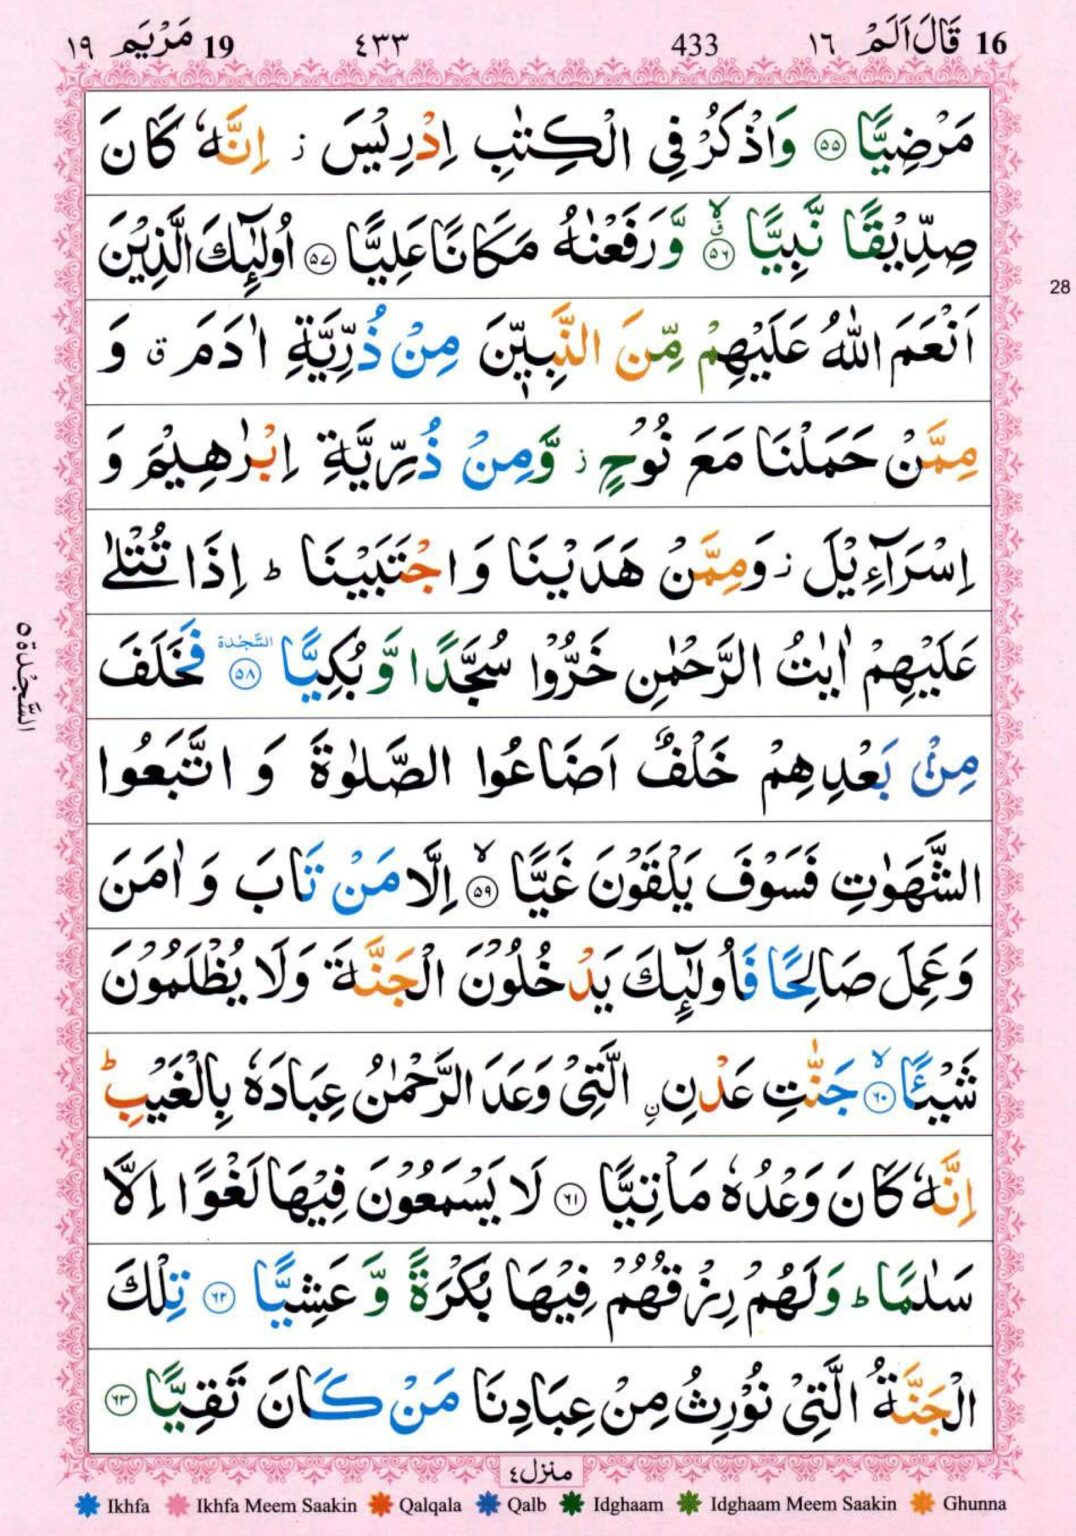 16 قَالَ اَلَمْ ١٦ 433 ٤٣٣ 19 مَرْيَم ١٩
مَرْضِيًّا ۝٥٥ وَاذْكُرْ فِى الْكِتٰبِ اِدْرِيْسَ ز اِنَّهٗ كَانَ
صِدِّيْقًا نَّبِيًّا ۝٥٦ۙ وَّرَفَعْنٰهُ مَكَانًا عَلِيًّا ۝٥٧ اُولٰٓئِكَ الَّذِيْنَ
28
اَنْعَمَ اللّٰهُ عَلَيْهِمْ مِّنَ النَّبِيّٖنَ مِنْ ذُرِّيَّةِ اٰدَمَ ق وَ
مِمَّنْ حَمَلْنَا مَعَ نُوْحٍ ز وَّمِنْ ذُرِّيَّةِ اِبْرٰهِيْمَ وَ
اِسْرَآءِيْلَ ز وَمِمَّنْ هَدَيْنَا وَاجْتَبَيْنَا ط اِذَا تُتْلٰى
عَلَيْهِمْ اٰيٰتُ الرَّحْمٰنِ خَرُّوْا سُجَّدًا وَّبُكِيًّا ۝٥٨ السَّجْدَة فَخَلَفَ
السَّجْدَة ٥
مِنْۢ بَعْدِهِمْ خَلْفٌ اَضَاعُوا الصَّلٰوةَ وَاتَّبَعُوا
الشَّهَوٰتِ فَسَوْفَ يَلْقَوْنَ غَيًّا ۝٥٩ۙ اِلَّا مَنْ تَابَ وَاٰمَنَ
وَعَمِلَ صَالِحًا فَاُولٰٓئِكَ يَدْخُلُوْنَ الْجَنَّةَ وَلَا يُظْلَمُوْنَ
شَيْـًٔا ۝٦٠ۙ جَنّٰتِ عَدْنِ ن الَّتِىْ وَعَدَ الرَّحْمٰنُ عِبَادَهٗ بِالْغَيْبِ ط
اِنَّهٗ كَانَ وَعْدُهٗ مَاْتِيًّا ۝٦١ لَا يَسْمَعُوْنَ فِيْهَا لَغْوًا اِلَّا
سَلٰمًا ط وَلَهُمْ رِزْقُهُمْ فِيْهَا بُكْرَةً وَّعَشِيًّا ۝٦٢ تِلْكَ
الْجَنَّةُ الَّتِىْ نُوْرِثُ مِنْ عِبَادِنَا مَنْ كَانَ تَقِيًّا ۝٦٣
منزل ٤
Ikhfa Ikhfa Meem Saakin Qalqala Qalb Idghaam Idghaam Meem Saakin Ghunna